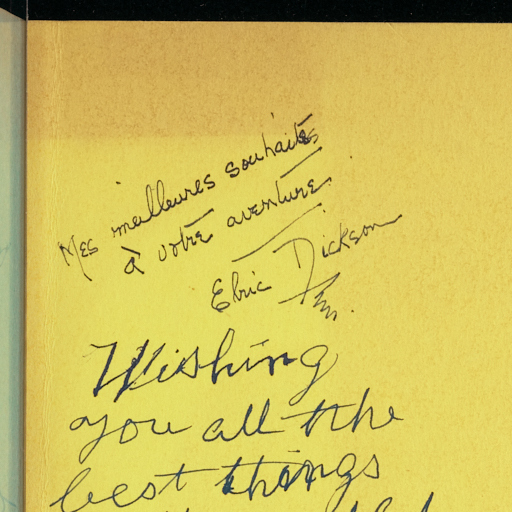 Mes meilleures souhaits
à votre aventure.
Elric Dickson
Wishing
you all the
best things